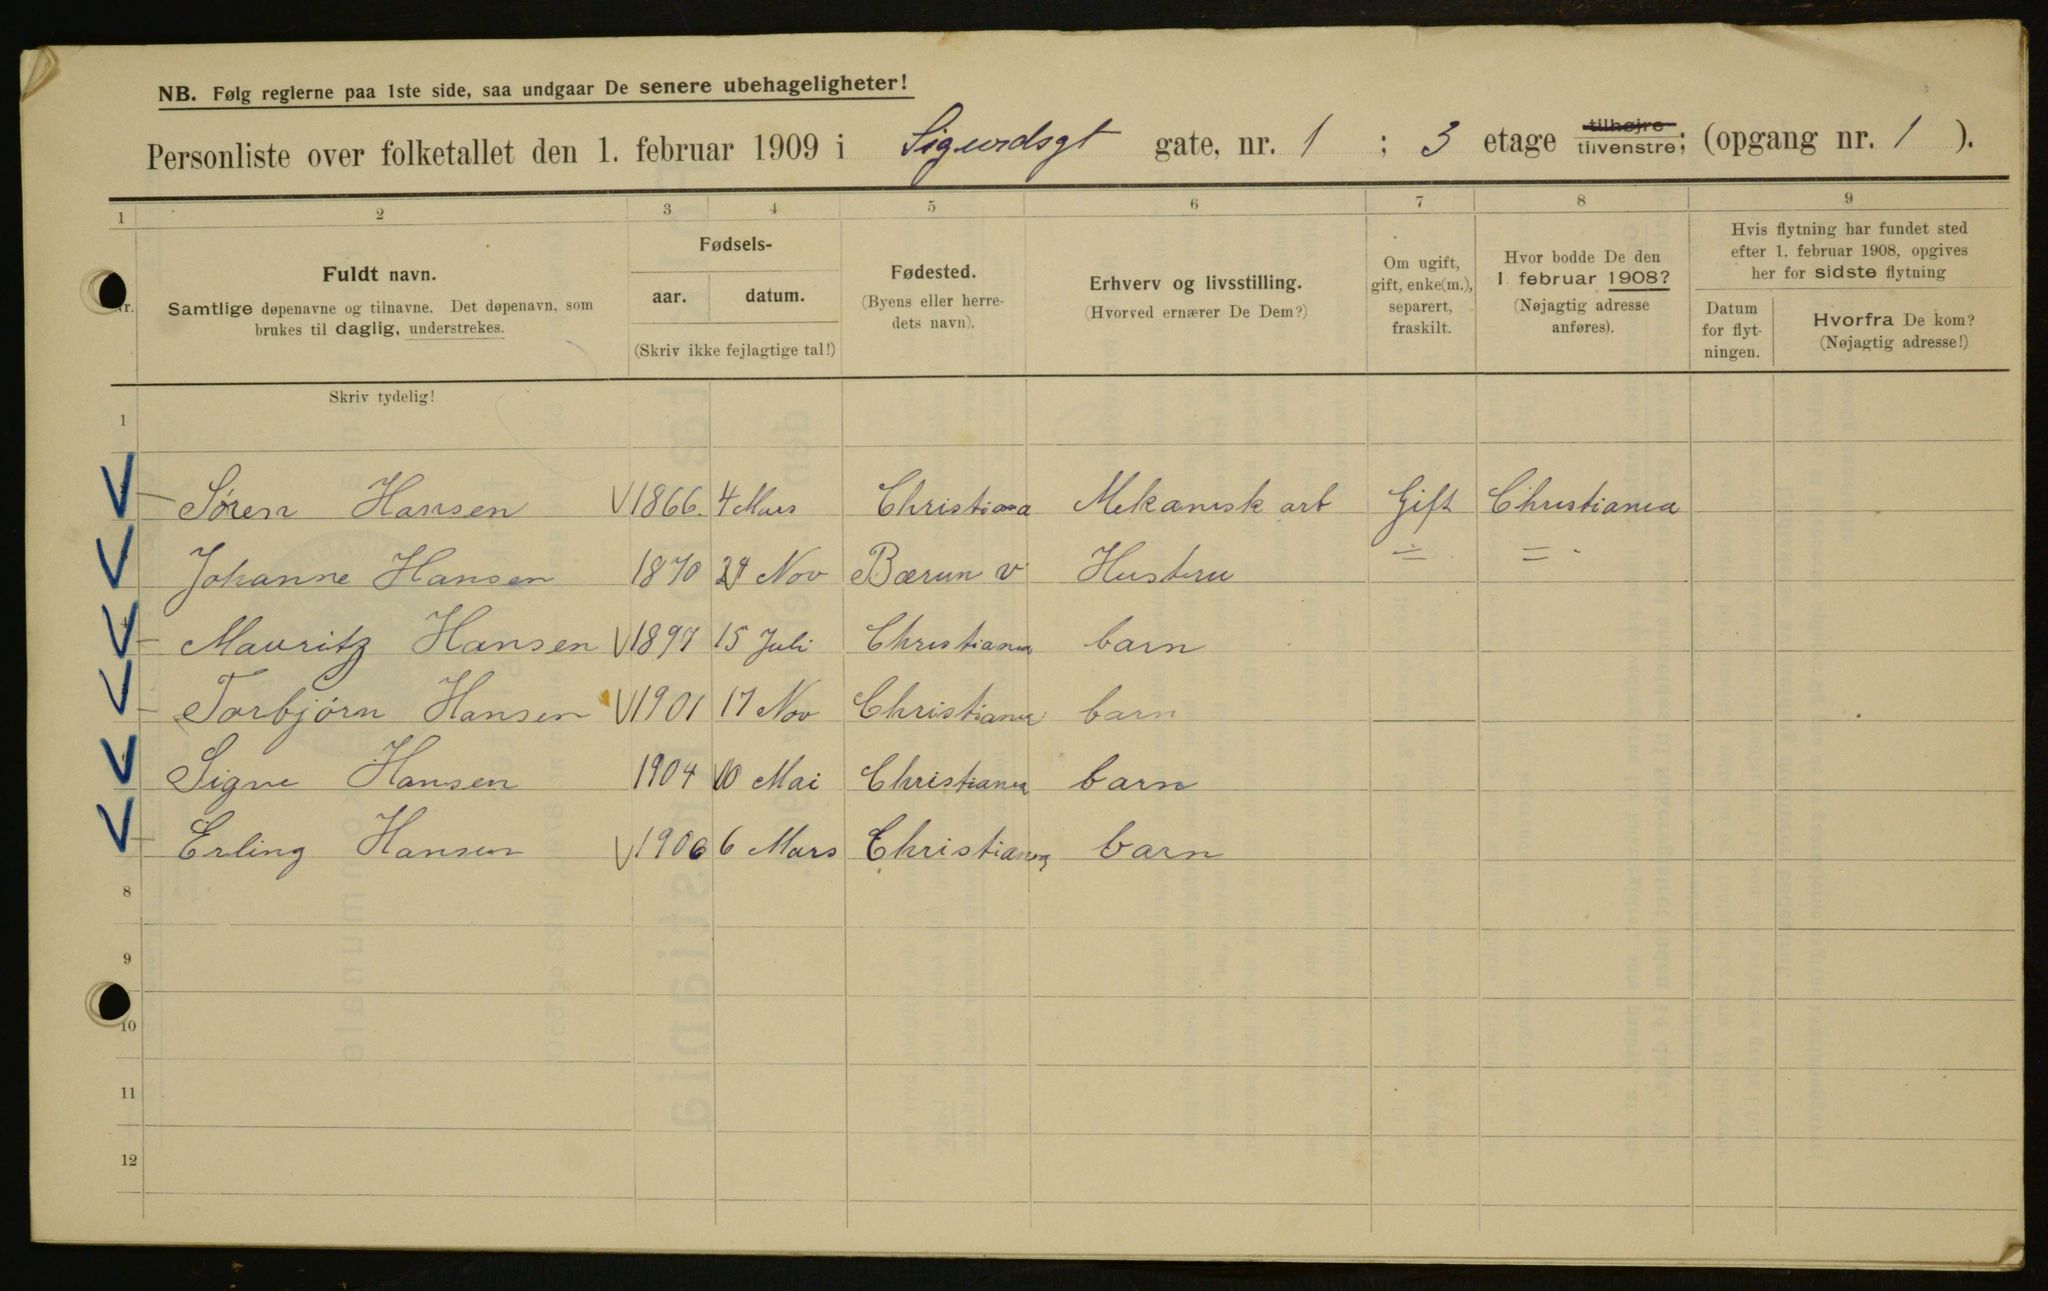 NB. Følg reglerne paa 1ste side, saa undgaar De senere ubehageligheter!
Personliste over folketallet den 1. februar 1909 i Sigurdsgt gate, nr. 1 ; 3 etage tilhøjre tilvenstre; (opgang nr. 1 ).
1 2 3 4 5 6 7 8 9
Nr.
Fuldt navn.
Samtlige døpenavne og tilnavne. Det døpenavn, som
brukes til daglig, understrekes.
Fødsels-
aar. datum.
(Skriv ikke fejlagtige tal!)
Fødested.
(Byens eller herre-
dets navn).
Erhverv og livsstilling.
(Hvorved ernærer De Dem?)
Om ugift,
gift, enke(m.),
separert,
fraskilt.
Hvor bodde De den
1. februar 1908?
(Nøjagtig adresse
anføres).
Hvis flytning har fundet sted
efter 1. februar 1908, opgives
her for sidste flytning
Datum
for flyt-
ningen.
Hvorfra De kom?
(Nøjagtig adresse!)
Skriv tydelig!
1
Søren Hansen 1866. 4 Mars Christiana Mekanisk arb Gift Christiania
Johanne Hansen 1870 24 Nov Bærum v Hustru = =
Mauritz Hansen 1897 15 Juli Christiania barn
Torbjørn Hansen 1901 17 Nov Christiania barn
Signe Hansen 1904 10 Mai Christiania barn
Erling Hansen 1906 6 Mars Christiania barn
8
9
10
11
12